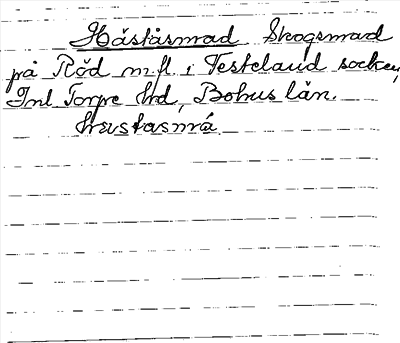 Håståsmad Skogsmad
på Röd m.fl. i Testeland socken,
Inl Torpe Hd, Bohus län.
hrustasmá